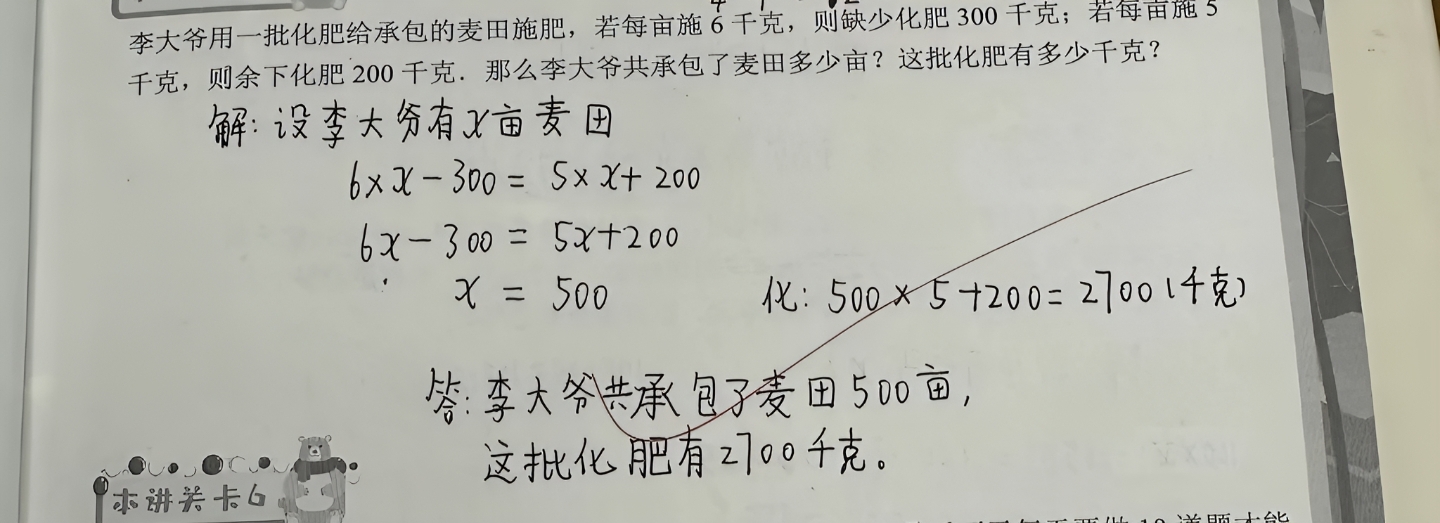 李大爷用一批化肥给承包的麦田施肥，若每亩施 6 千克，则缺少化肥 300 千克；若每亩施 5
千克，则余下化肥 200 千克．那么李大爷共承包了麦田多少亩？这批化肥有多少千克？
解: 设李大爷有x亩麦田
6×x-300= 5×x+200
6x-300= 5x+200
x = 500
化: 500×5+200=2700(千克)
答: 李大爷共承包了麦田500亩,
这批化肥有2700千克。
本讲关卡6